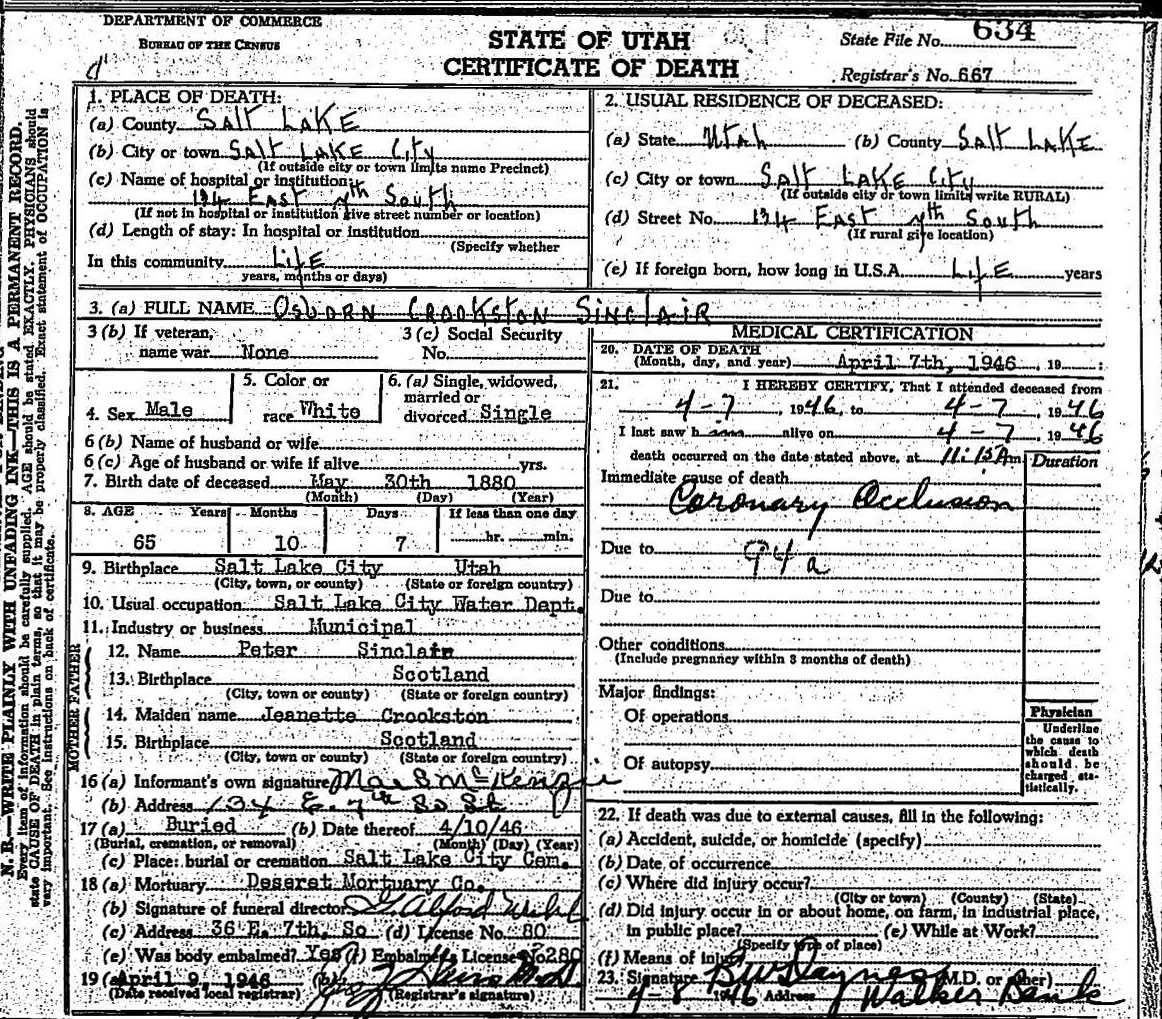 DEPARTMENT OF COMMERCE
BUREAU OF THE CENSUS
STATE OF UTAH
CERTIFICATE OF DEATH
State File No. 634
Registrar's No. 667
N. B.—WRITE PLAINLY WITH UNFADING INK—THIS IS A PERMANENT RECORD.
Every item of information should be carefully supplied. AGE should be stated EXACTLY. PHYSICIANS should
state CAUSE OF DEATH in plain terms, so that it may be properly classified. Exact statement of OCCUPATION is
very important. See instructions on back of certificate.
1. PLACE OF DEATH:
(a) County SALT LAKE
(b) City or town SALT LAKE CITY
(If outside city or town limits name Precinct)
(c) Name of hospital or institution:
134 EAST 7th South
(If not in hospital or institution give street number or location)
(d) Length of stay: In hospital or institution
(Specify whether
In this community LIFE
years, months or days)
2. USUAL RESIDENCE OF DECEASED:
(a) State Utah (b) County SALT LAKE
(c) City or town SALT LAKE CITY
(If outside city or town limits write RURAL)
(d) Street No. 134 EAST 7th South
(If rural give location)
(e) If foreign born, how long in U.S.A. LIFE years
3. (a) FULL NAME OSBORN CROOKSTON SINCLAIR
3 (b) If veteran, 3 (c) Social Security
name war None No.
4. Sex Male
5. Color or
race White
6. (a) Single, widowed,
married or
divorced Single
6 (b) Name of husband or wife
6 (c) Age of husband or wife if alive yrs.
7. Birth date of deceased May 30th 1880
(Month) (Day) (Year)
8. AGE Years Months Days If less than one day
65 10 7 hr. min.
9. Birthplace Salt Lake City Utah
(City, town, or county) (State or foreign country)
10. Usual occupation Salt Lake City Water Dept.
11. Industry or business Municipal
FATHER
12. Name Peter Sinclair
13. Birthplace Scotland
(City, town or county) (State or foreign country)
MOTHER
14. Maiden name Jeanette Crookston
15. Birthplace Scotland
(City, town or county) (State or foreign country)
16 (a) Informant's own signature Mae S McKenzie
(b) Address 134 E. 7th So St
17 (a) Buried (b) Date thereof 4/10/46
(Burial, cremation, or removal) (Month) (Day) (Year)
(c) Place: burial or cremation Salt Lake City Cem.
18 (a) Mortuary Deseret Mortuary Co.
(b) Signature of funeral director
(c) Address 36 E. 7th, So (d) License No. 80
(e) Was body embalmed? Yes (f) Embalmer's License No 280
19 (a) April 9, 1946 (b)
(Date received local registrar) (Registrar's signature)
MEDICAL CERTIFICATION
20. DATE OF DEATH
(Month, day, and year) April 7th, 1946 19
21. I HEREBY CERTIFY, That I attended deceased from
4-7, 1946, to 4-7, 1946
I last saw him alive on 4-7, 1946
death occurred on the date stated above, at 11:15 Am
Duration
Immediate cause of death
Coronary Occlusion
Due to 94a
Due to
Other conditions
(Include pregnancy within 3 months of death)
Major findings:
Of operations
Of autopsy
Physician
Underline
the cause to
which death
should be
charged sta-
tistically.
22. If death was due to external causes, fill in the following:
(a) Accident, suicide, or homicide (specify)
(b) Date of occurrence
(c) Where did injury occur?
(City or town) (County) (State)
(d) Did injury occur in or about home, on farm, in industrial place,
in public place? (e) While at Work?
(Specify type of place)
(f) Means of injury
23. Signature B W Daynes (M.D. or other)
4-8 1946 Address Walker Bank